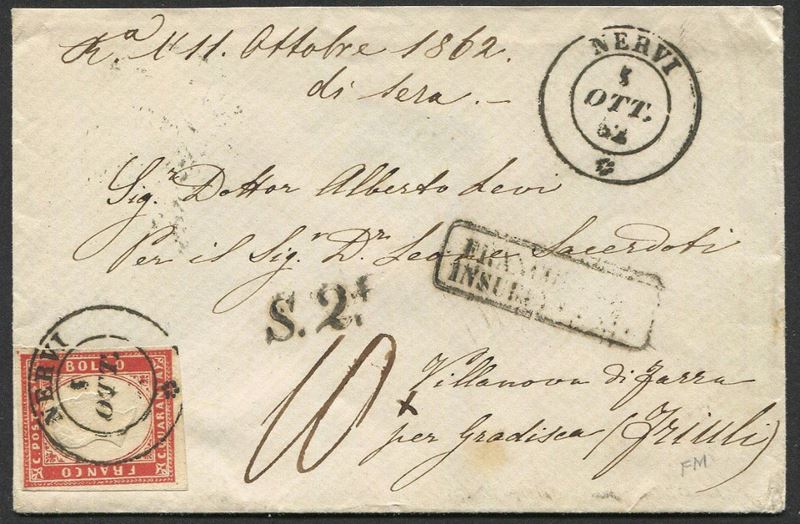 R.ª l'11. Ottobre 1862.
di sera.-
NERVI
8
OTT.
62
Sig.r Dottor Alberto Levi
Per il Sig.r D.r Leone Sacerdoti
FRANCOBOLLO
INSUFFICIENTE
S. 2.
10
Villanova di Farra
per Gradisca (Friuli)
FM
NERVI
8
OTT.
C. POSTE
BOLLO
C. QUARANTA
FRANCO